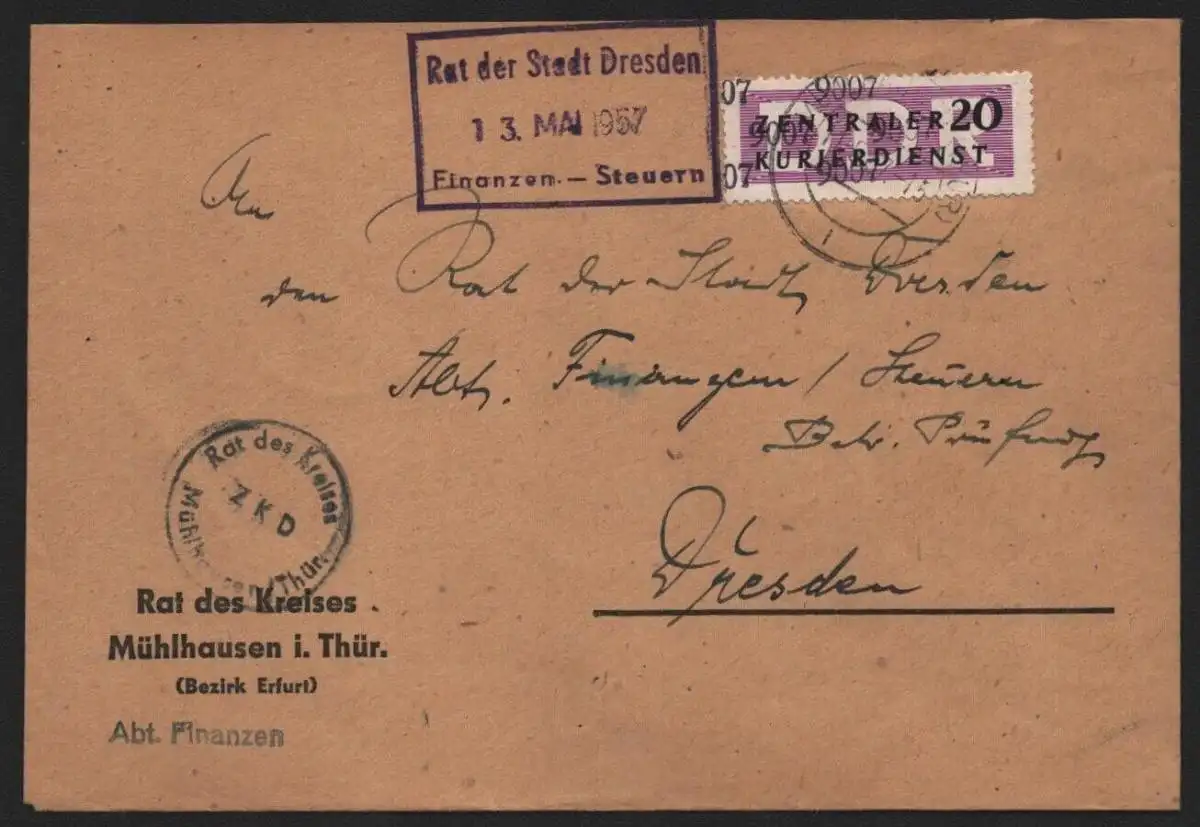 Rat der Stadt Dresden
13. MAI 1957
Finanzen. — Steuern
07 9007
DDR
ZENTRALER 20
9007
KURIERDIENST
07 9007
An
den Rat der Stadt Dresden
Abt. Finanzen / Steuern
Betr. Prüfung
Dresden
Rat des Kreises
ZKD
Mühlhausen/Thür.
Rat des Kreises
Mühlhausen i. Thür.
(Bezirk Erfurt)
Abt. Finanzen